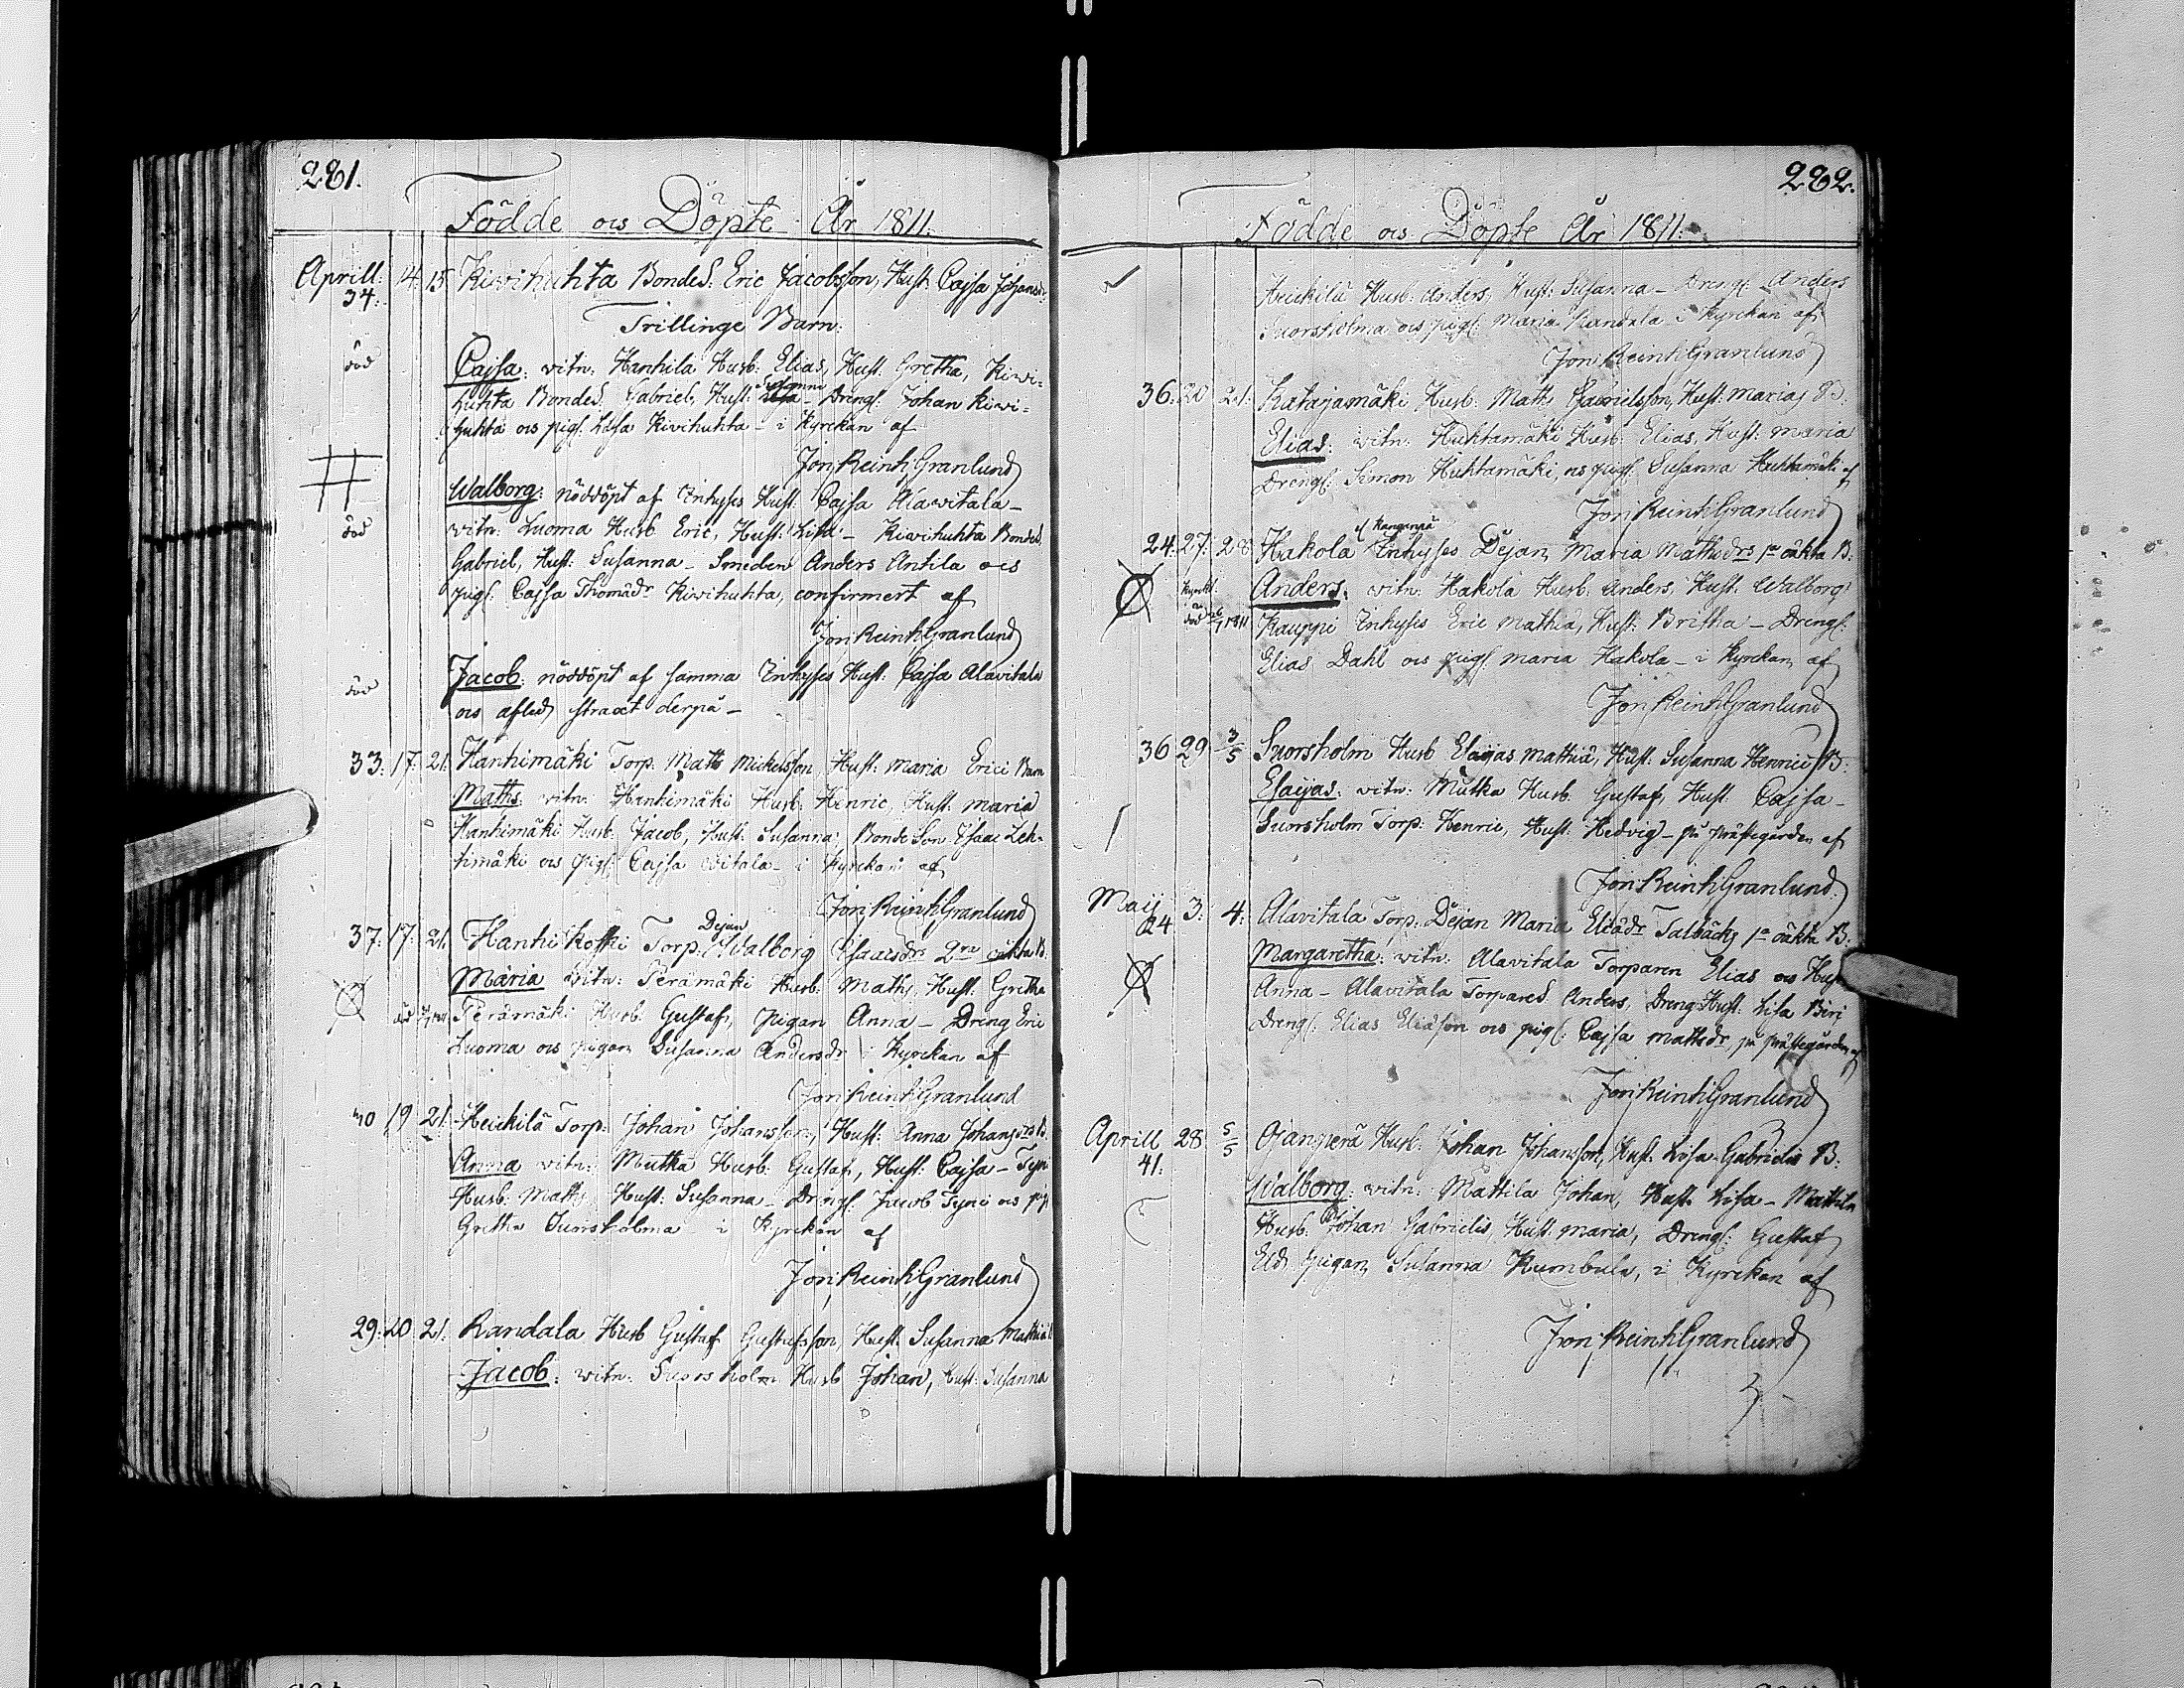 281.
Födde ock Döpte År 1811.
Aprill: 14. 15. Kivihuhta Bondes: Eric Jacobsson, Hust: Cajsa Johansdr
34.
Trillinge Barn:
död Cajsa: vitn: Hanhila Husb: Elias, Hust: Gretha, Kivi=
huhta Bondes. Gabriel, Hust: Susanna – Drengs: Johan Kivi=
huhta ock pigs: Lisa Kivihuhta – i Kyrckan af
Jon: Reinh: Granlund
Walborg: nöddöpt af Inhyses Hust: Cajsa Alavitala –
död vitn: Luoma Husb: Eric, Hust: Lisa – Kivihuhta Bondes.
Gabriel, Hust: Susanna – Smeden Anders Antila ock
pigs: Cajsa Thomædr Kivihuhta, confirmert af
Jon: Reinh: Granlund
död Jacob: nöddöpt af samma Inhyses Hust: Cajsa Alavitala
ock afled straxt derpå –
33: 17: 21. Hanhimäki Torp: Matts Mickelsson, Hust: Maria Erici Barn
Maths: vitn: Hanhimäki Husb: Henric, Hust: Maria
Hanhimäki Husb: Jacob, Hust: Susanna, Bonde Son Isaac Leh=
timäki ock pigs: Cajsa Vitala – i Kyrckan af
Jon: Reinh: Granlund
37: 17: 21. Hanhikoski Torp: Dejan Walborg Isaacsdr 2ra oäkta B:
Maria vitn: Perämäki Husb: Maths, Hust: Gretha
död Perämäki Husb: Gustaf, pigan Anna – Dreng Eric
Luoma ock pigan Susanna Andersdr i Kyrckan af
Jon: Reinh: Granlund
40 19 21. Heickilä Torp: Johan Johansson, Hust: Anna Johansdr B.
Anna vitn: Mutka Husb: Gustaf, Hust: Cajsa – Tyni
Husb: Maths, Hust: Susanna – Drengs: Jacob Tyni ock pigs
Gretha Suorsholma i Kyrckan af
Jon: Reinh: Granlund
29: 20 21. Randala Husb Gustaf Gustafsson, Hust: Susanna Mathiæ B
Jacob: vitn: Suorsholm Husb Johan, Hust: Susanna
282.
Födde ock Döpte År 1811.
Heickilä Husb: Anders, Hust: Susanna – Drengs: Anders
Suorsholma ock pigs: Maria Randala i Kyrckan af
Jon: Reinh: Granlund
36: 20 21: Katajamäki Husb: Matts Gabrielsson, Hust: Maria B:
Elias: vitn: Huhtamäki Husb: Elias, Hust: Maria
Drengs: Simon Huhtamäki, ock pigs: Susanna Huhtamäki af
Jon: Reinh: Granlund
24: 27: 28 Hakola Inhyses Dejan Maria Mathsdr 1a oäkta B:
Anders: vitn: Hakola Husb: Anders, Hust: Walborg
död 1811 Kauppi Inhyses Eric Mathiæ, Hust: Britha – Drengs:
Elias Dahl ock pigs: Maria Hakola – i Kyrckan af
Jon: Reinh: Granlund
36 29 3/5 Suorsholm Husb Esaijas Mathiæ, Hust: Susanna Henrici B:
Esaijas: vitn: Mutka Husb: Gustaf, Hust: Cajsa –
Suorsholm Torp: Henric, Hust: Hedvig – på prästegården af
Jon: Reinh: Granlund
Maij 3: 4: Alavitala Torp: Dejan Maria Eliædr Talbäck 1a oäkta B:
24
Margaretha: vitn: Alavitala Torparen Elias ock Hust
Anna – Alavitala Torpares Anders, Dreng Hust: Lisa Biri
Drengs: Elias Eliæson ock pigs: Cajsa Mattsdr, på prästegården af
Jon: Reinh: Granlund
Aprill 28 5/5 Ojanperä Husb: Johan Johansson, Hust: Lisa Gabrielis B:
41:
Walborg: vitn: Mattila Johan, Hust: Lisa – Mattila
Husb: Johan Gabrielis, Hust: Maria, Drengs: Gustaf
Eld, pigan Susanna Kumbula, i Kyrckan af
Jon: Reinh: Granlund